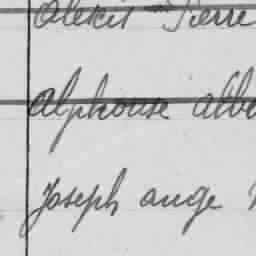 Alexis Pierre
Alphonse Albe
Joseph ange